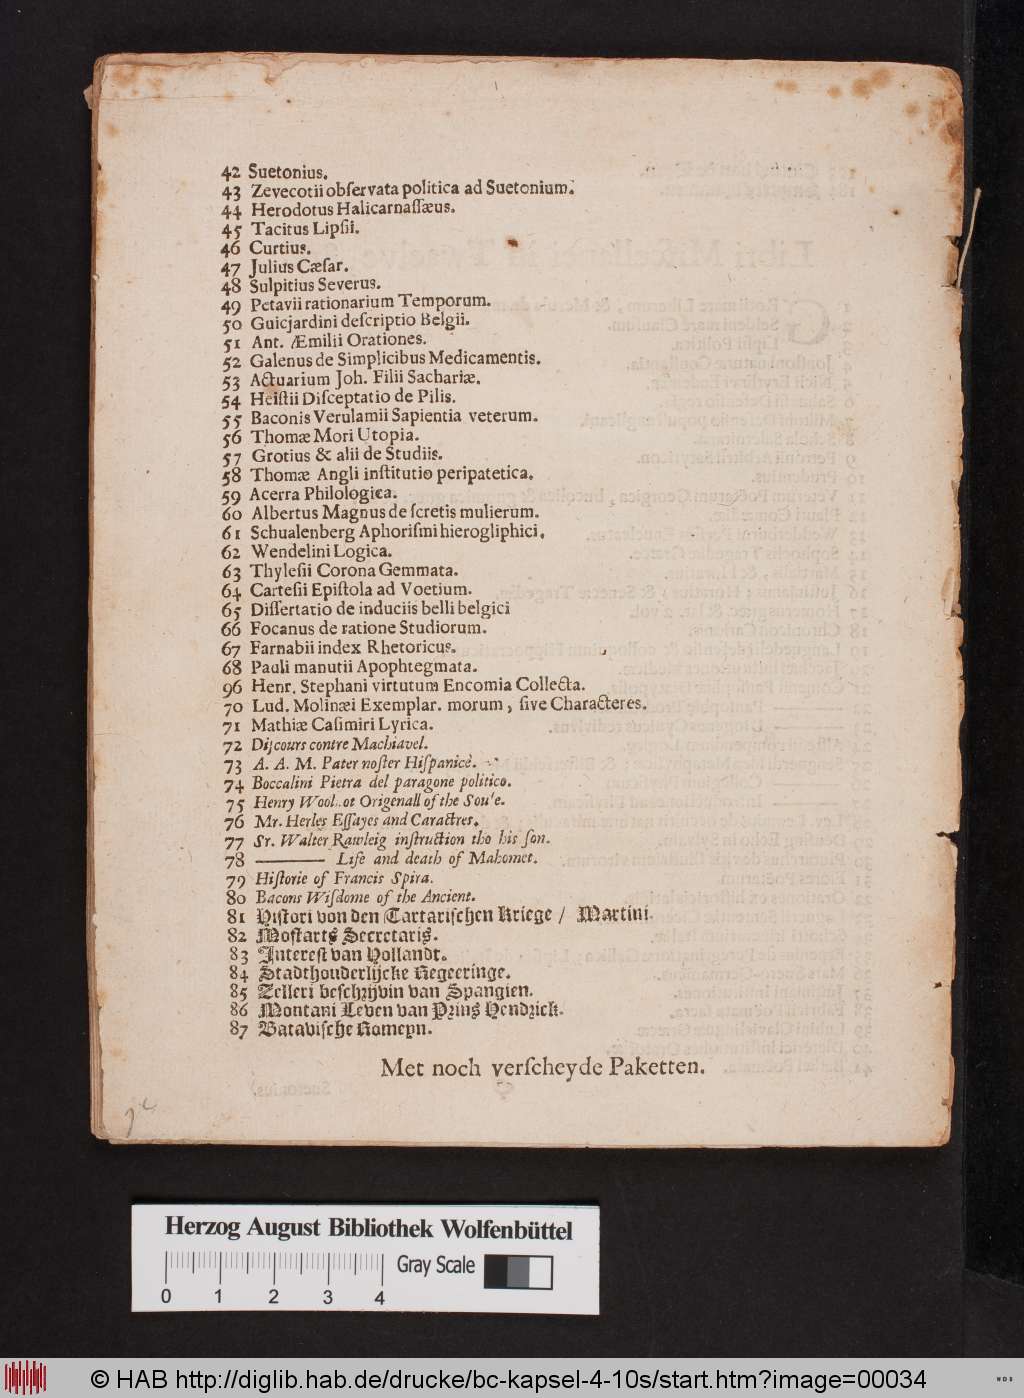 42 Suetonius.
43 Zevecotii obſervata politica ad Suetonium.
44 Herodotus Halicarnaſſæus.
45 Tacitus Lipſii.
46 Curtius.
47 Julius Cæſar.
48 Sulpitius Severus.
49 Petavii rationarium Temporum.
50 Guicjardini deſcriptio Belgii.
51 Ant. Æmilii Orationes.
52 Galenus de Simplicibus Medicamentis.
53 Actuarium Joh. Filii Sachariæ.
54 Heiſtii Diſceptatio de Pilis.
55 Baconis Verulamii Sapientia veterum.
56 Thomæ Mori Utopia.
57 Grotius & alii de Studiis.
58 Thomæ Angli inſtitutio peripatetica.
59 Acerra Philologica.
60 Albertus Magnus de ſcretis mulierum.
61 Schualenberg Aphoriſmi hierogliphici.
62 Wendelini Logica.
63 Thyleſii Corona Gemmata.
64 Carteſii Epiſtola ad Voetium.
65 Diſſertatio de induciis belli belgici
66 Focanus de ratione Studiorum.
67 Farnabii index Rhetoricus.
68 Pauli manutii Apophtegmata.
96 Henr. Stephani virtutum Encomia Collecta.
70 Lud. Molinæi Exemplar. morum, ſive Characteres.
71 Mathiæ Caſimiri Lyrica.
72 Diſcours contre Machiavel.
73 A. A. M. Pater noſter Hiſpanicè.
74 Boccalini Pietra del paragone politico.
75 Henry Origenall of the
76 Mr. Herles Eſſayes and Caractres.
77 Sr. Walter Rawleig inſtruction tho his ſon.
78 ——— Life and death of Mahomet.
79 Hiſtorie of Francis Spira.
80 Bacons Wiſdome of the Ancient.
81 Hiſtori von den Tartariſchen Kriege / Martini.
82 Moſtarts Secretaris.
83 Intereſt van Hollandt.
84 Stadthouderlijcke Regeeringe.
85 Zelleri beſchrijvin van Spangien.
86 Montani Leven van Prins Hendrick.
87 Bataviſche Romeyn.
Met noch verſcheyde Paketten.
Herzog August Bibliothek Wolfenbüttel
Gray Scale
0 1 2 3 4
© HAB http://diglib.hab.de/drucke/bc-kapsel-4-10s/start.htm?image=00034